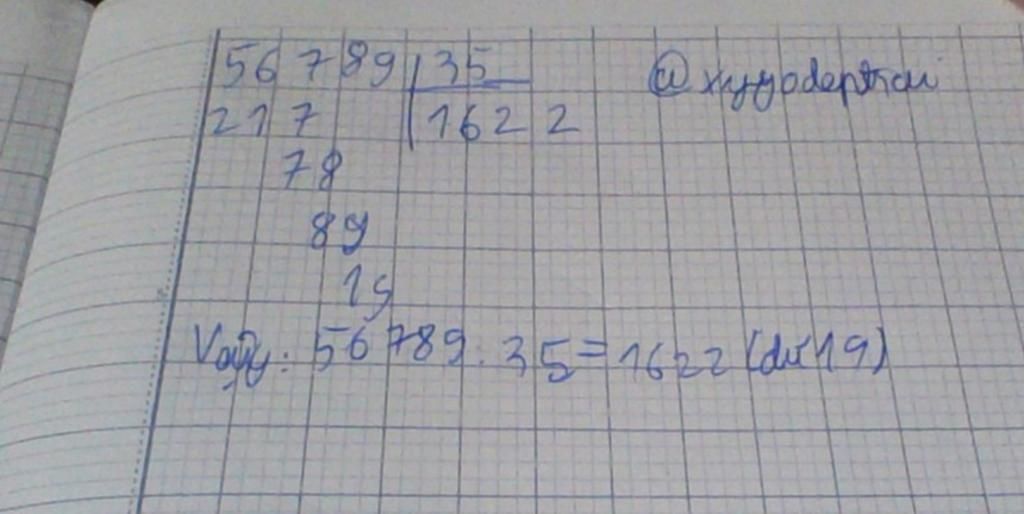 56789 35 @xyzodeptrai
217 1622
78
89
19
Vậy: 56789 : 35 = 1622 (dư 19)